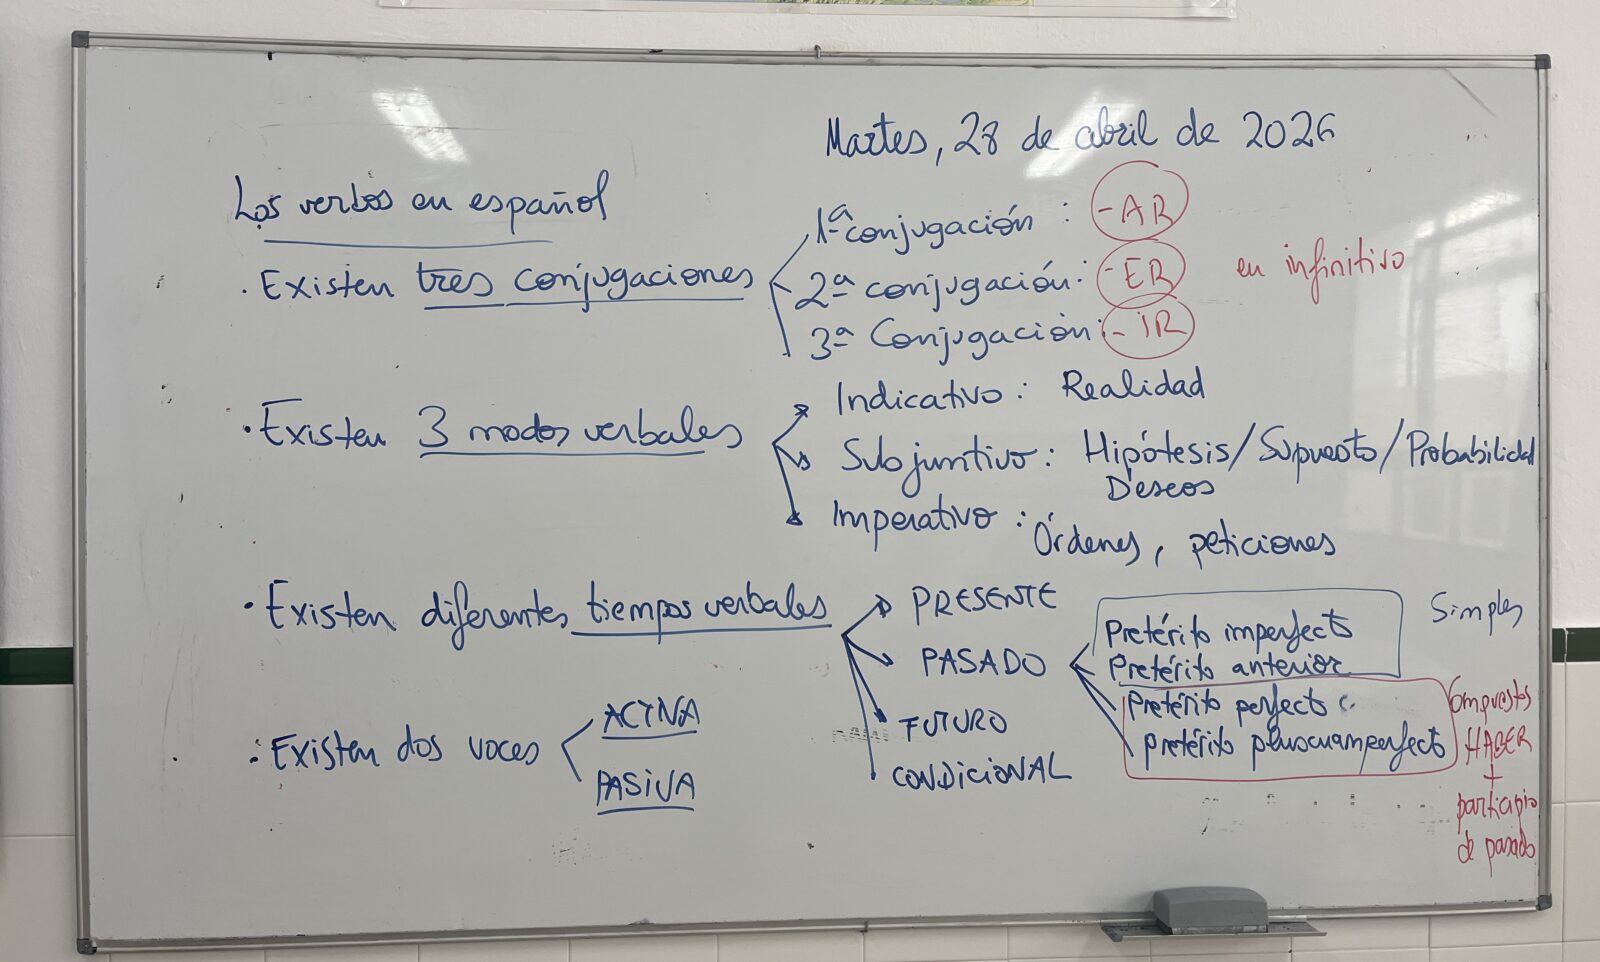 Martes, 28 de abril de 2026
Los verbos en español
· Existen tres conjugaciones
1ª conjugación : -AR
2ª conjugación: -ER
3ª Conjugación: -IR
en infinitivo
· Existen 3 modos verbales
Indicativo : Realidad
Subjuntivo : Hipótesis/Supuesto/Probabilidad
Deseos
Imperativo : Órdenes, peticiones
· Existen diferentes tiempos verbales
PRESENTE
PASADO
Pretérito imperfecto
Pretérito anterior
Simples
Pretérito perfecto
Pretérito pluscuamperfecto
Compuestos
HABER
+
participio
de pasado
FUTURO
CONDICIONAL
· Existen dos voces
ACTIVA
PASIVA